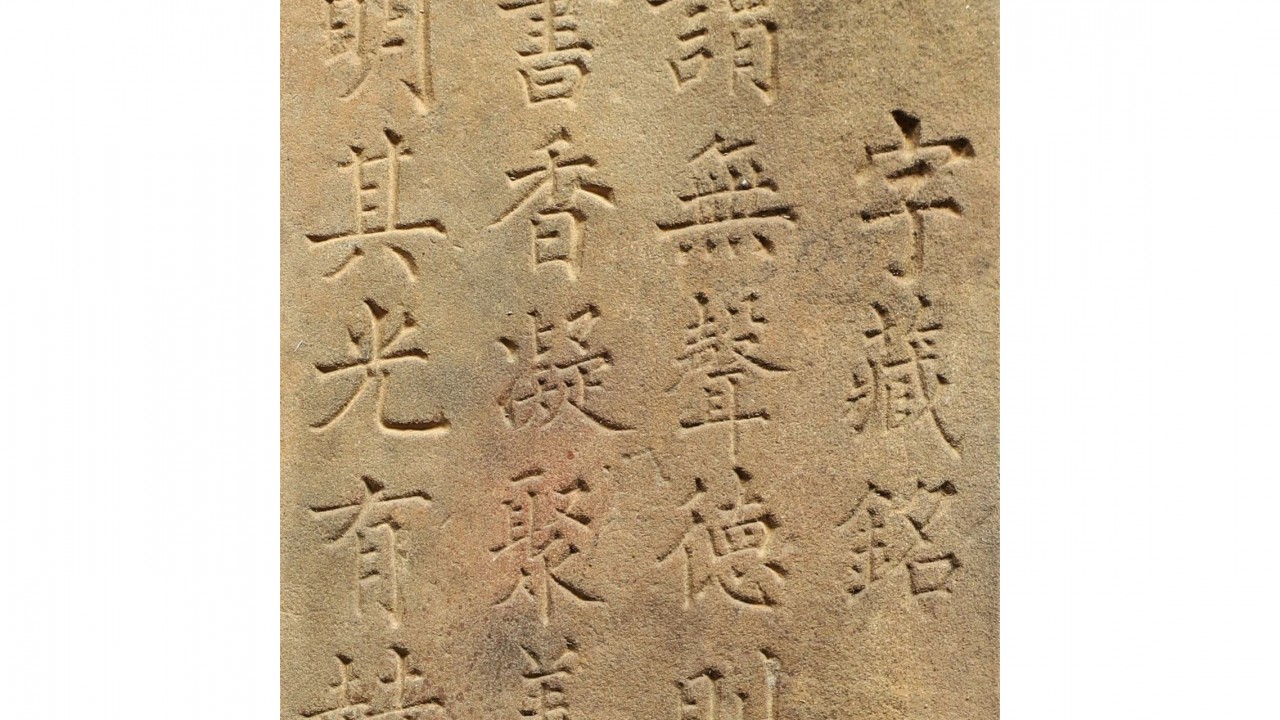 字藏銘
謂無聲德則
書香凝聚
明其光有